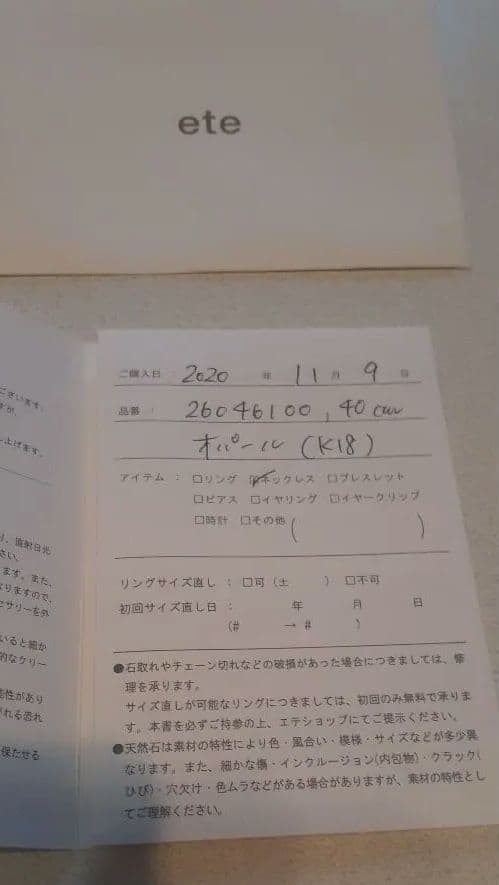 ete
ございます。
すが、
し上げます。
り、直射日光
さい。
ます。また、
なりますので、
セサリーを外
いると細か
的なクリー
能性があり
がれる恐れ
保たせる
ご購入日： 2020 年 11 月 9 日
品番： 26046100, 40cm
オパール (K18)
アイテム： □リング □ネックレス □ブレスレット
□ピアス □イヤリング □イヤークリップ
□時計 □その他 ( )
リングサイズ直し： □可 (± ) □不可
初回サイズ直し日： 年 月 日
(# → # )
●石取れやチェーン切れなどの破損があった場合につきましては、修
理を承ります。
サイズ直しが可能なリングにつきましては、初回のみ無料で承りま
す。本書を必ずご持参の上、エテショップにてご提示ください。
●天然石は素材の特性により色・風合い・模様・サイズなどが多少異
なります。また、細かな傷・インクルージョン(内包物)・クラック
(ひび)・穴欠け・色ムラなどがある場合がありますが、素材の特性とし
てご理解ください。